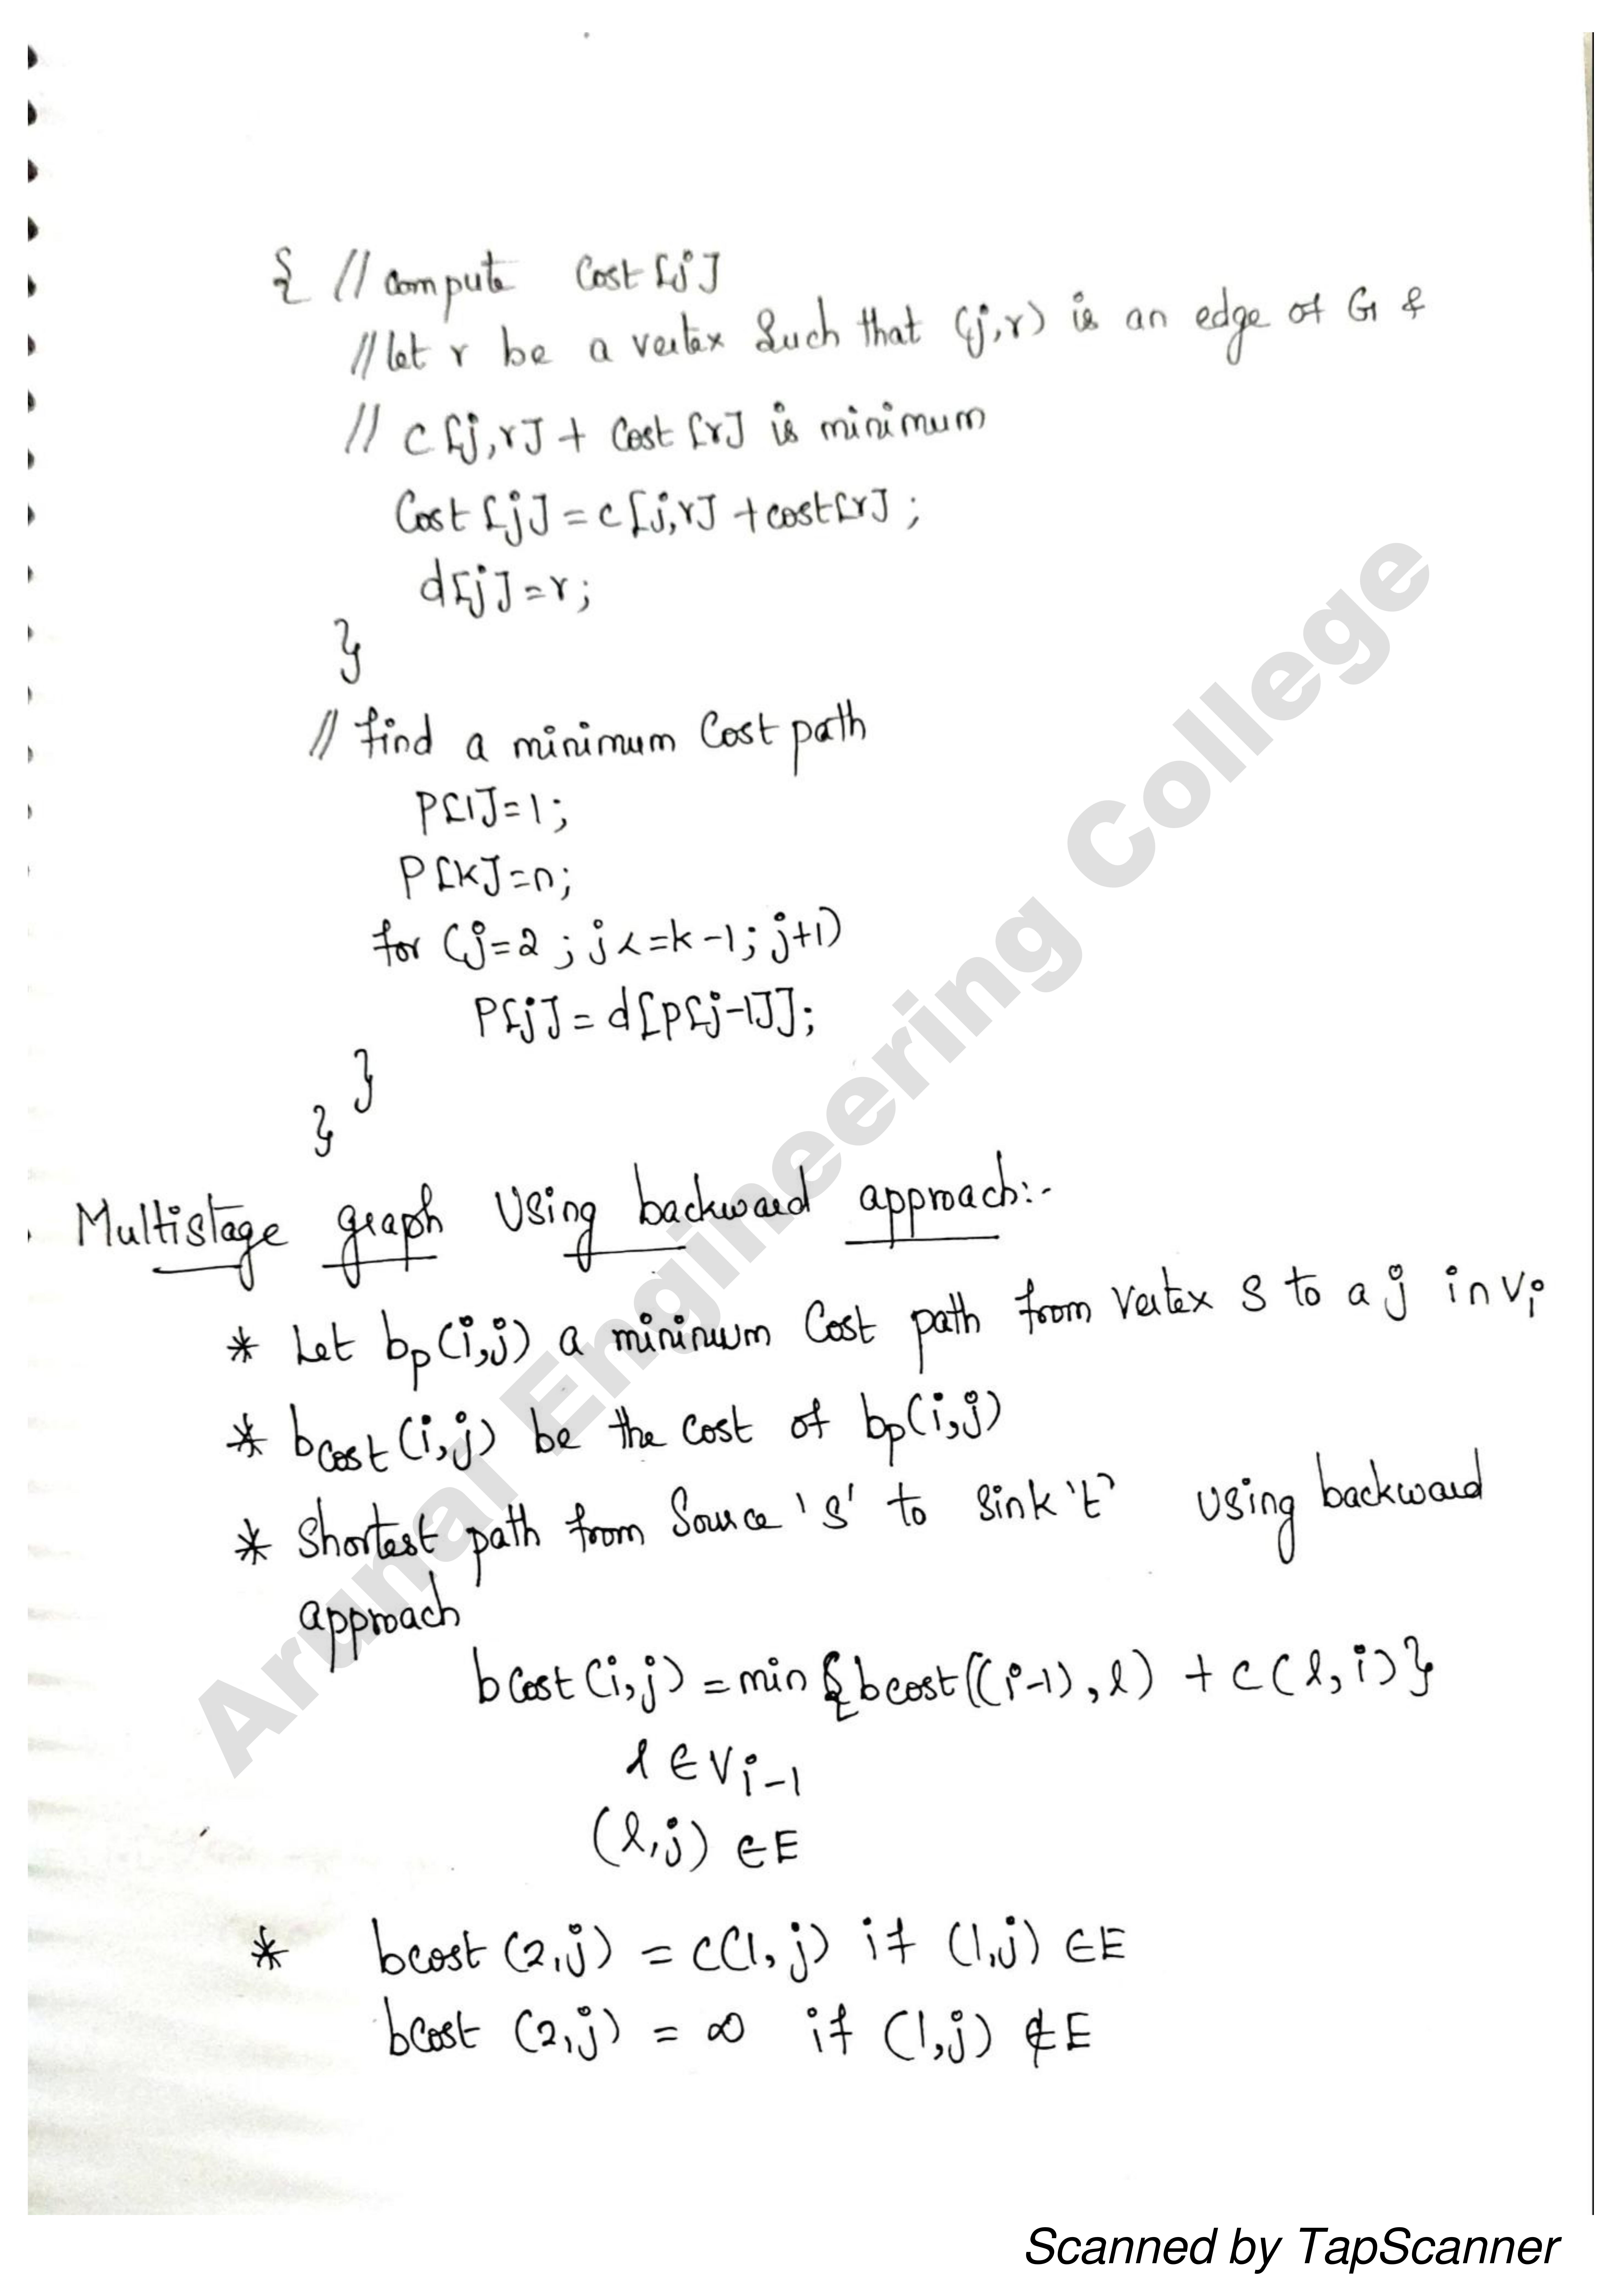 { // compute Cost [j]
// let r be a vertex Such that (j,r) is an edge of G &
// c [j,r] + Cost [r] is minimum
Cost [j] = c [j,r] + cost[r] ;
d[j] = r ;
}
// find a minimum Cost path
P[1] = 1 ;
P[k] = n ;
for (j=2 ; j <= k-1 ; j+1)
P[j] = d [p[j-1]] ;
}
}
Multistage graph Using backward approach:-
* Let bp(i,j) a mininum Cost path from vertex S to a j in Vi
* bcost (i,j) be the cost of bp(i,j)
* Shortest path from Source 'S' to Sink 't' Using backward
approach
bCost (i,j) = min {bcost((i-1), l) + c(l, i)}
l ∈ Vi-1
(l,j) ∈ E
* bcost (2,j) = c(1, j) if (1,j) ∈ E
bCost (2,j) = ∞ if (1,j) ∉ E
Arunai Engineering College
Scanned by TapScanner